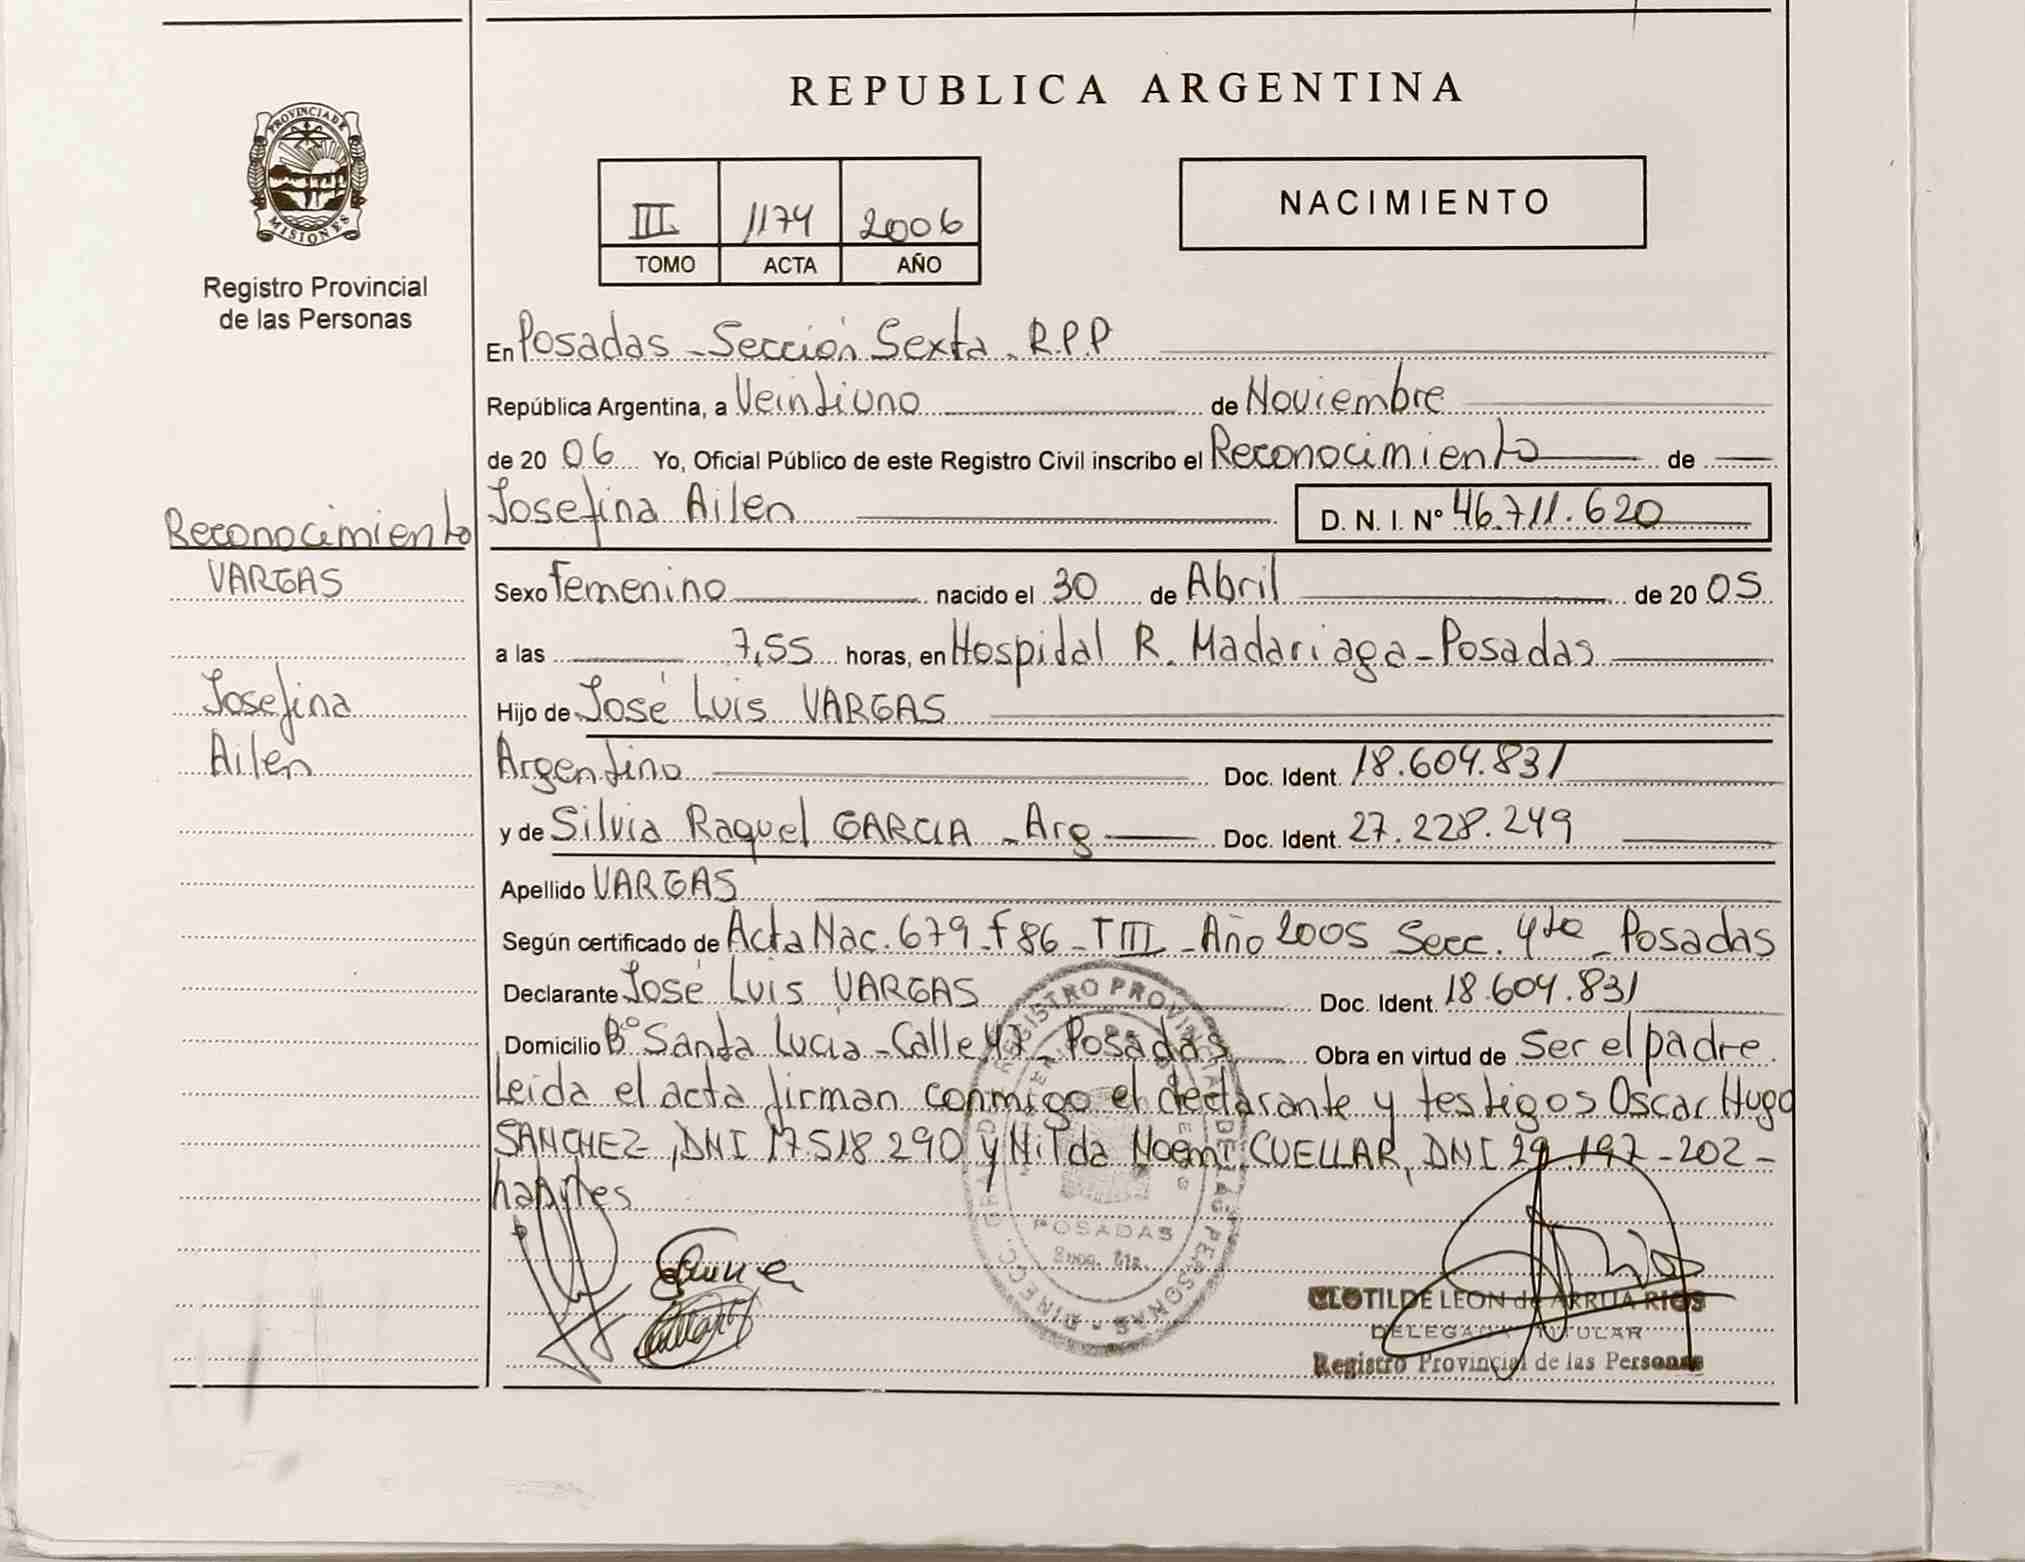 REPUBLICA ARGENTINA
PROVINCIA DE MISIONES
Registro Provincial
de las Personas
III 1174 2006
TOMO ACTA AÑO
NACIMIENTO
En Posadas - Sección Sexta. R.P.P
República Argentina, a Veintiuno de Noviembre
de 20 06 Yo, Oficial Público de este Registro Civil inscribo el Reconocimiento de
Josefina Ailen D. N. I. Nº 46.711.620
Reconocimiento
VARGAS
Josefina
Ailen
Sexo Femenino nacido el 30 de Abril de 20 05
a las 7,55 horas, en Hospidal R. Madariaga - Posadas
Hijo de José Luis VARGAS
Argentino Doc. Ident. 18.604.831
y de Silvia Raquel GARCIA - Arg Doc. Ident. 27.228.249
Apellido VARGAS
Según certificado de Acta Nac. 679 - F 86 - T III - Año 2005 Secc. 4ta - Posadas
Declarante José Luis VARGAS Doc. Ident. 18.604.831
Domicilio Bº Santa Lucia - Calle 47 - Posadas Obra en virtud de Ser el padre.
Leida el acta firman conmigo el declarante y testigos Oscar Hugo
SANCHEZ, DNI 17518290 y Nilda Noemi CUELLAR, DNI 29.197-202-
habiles
REGISTRO PROVINCIAL DE LAS PERSONAS - DIRECC. GRAL. D
POSADAS
CLOTILDE LEON de ARRUA RIOS
DELEGADA TITULAR
Registro Provincial de las Personas